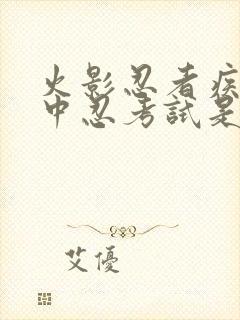 火影忍者疾
中忍考試是
艾優